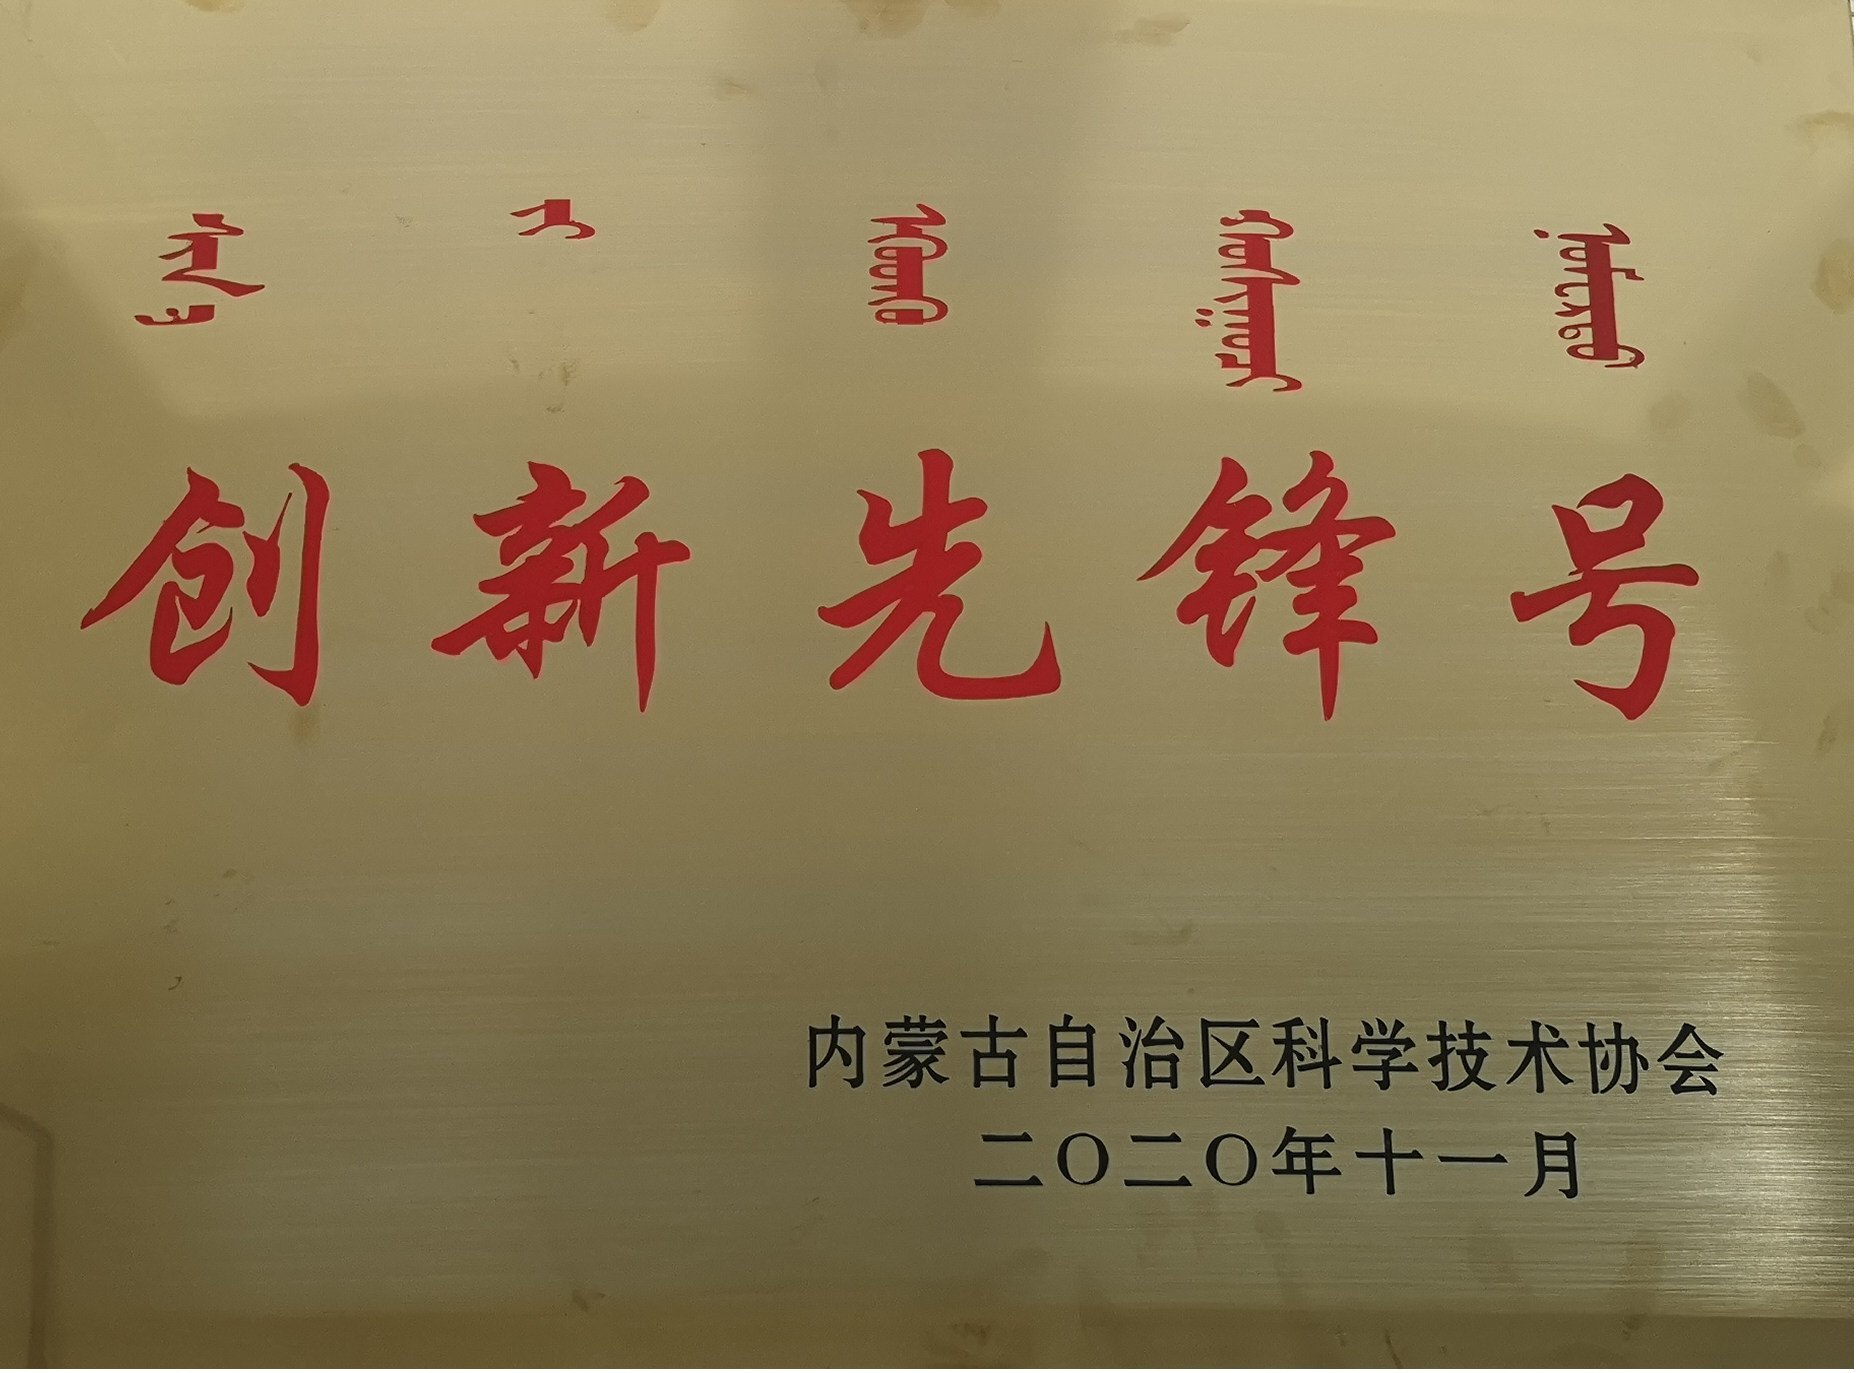 创新先锋号
内蒙古自治区科学技术协会
二〇二〇年十一月